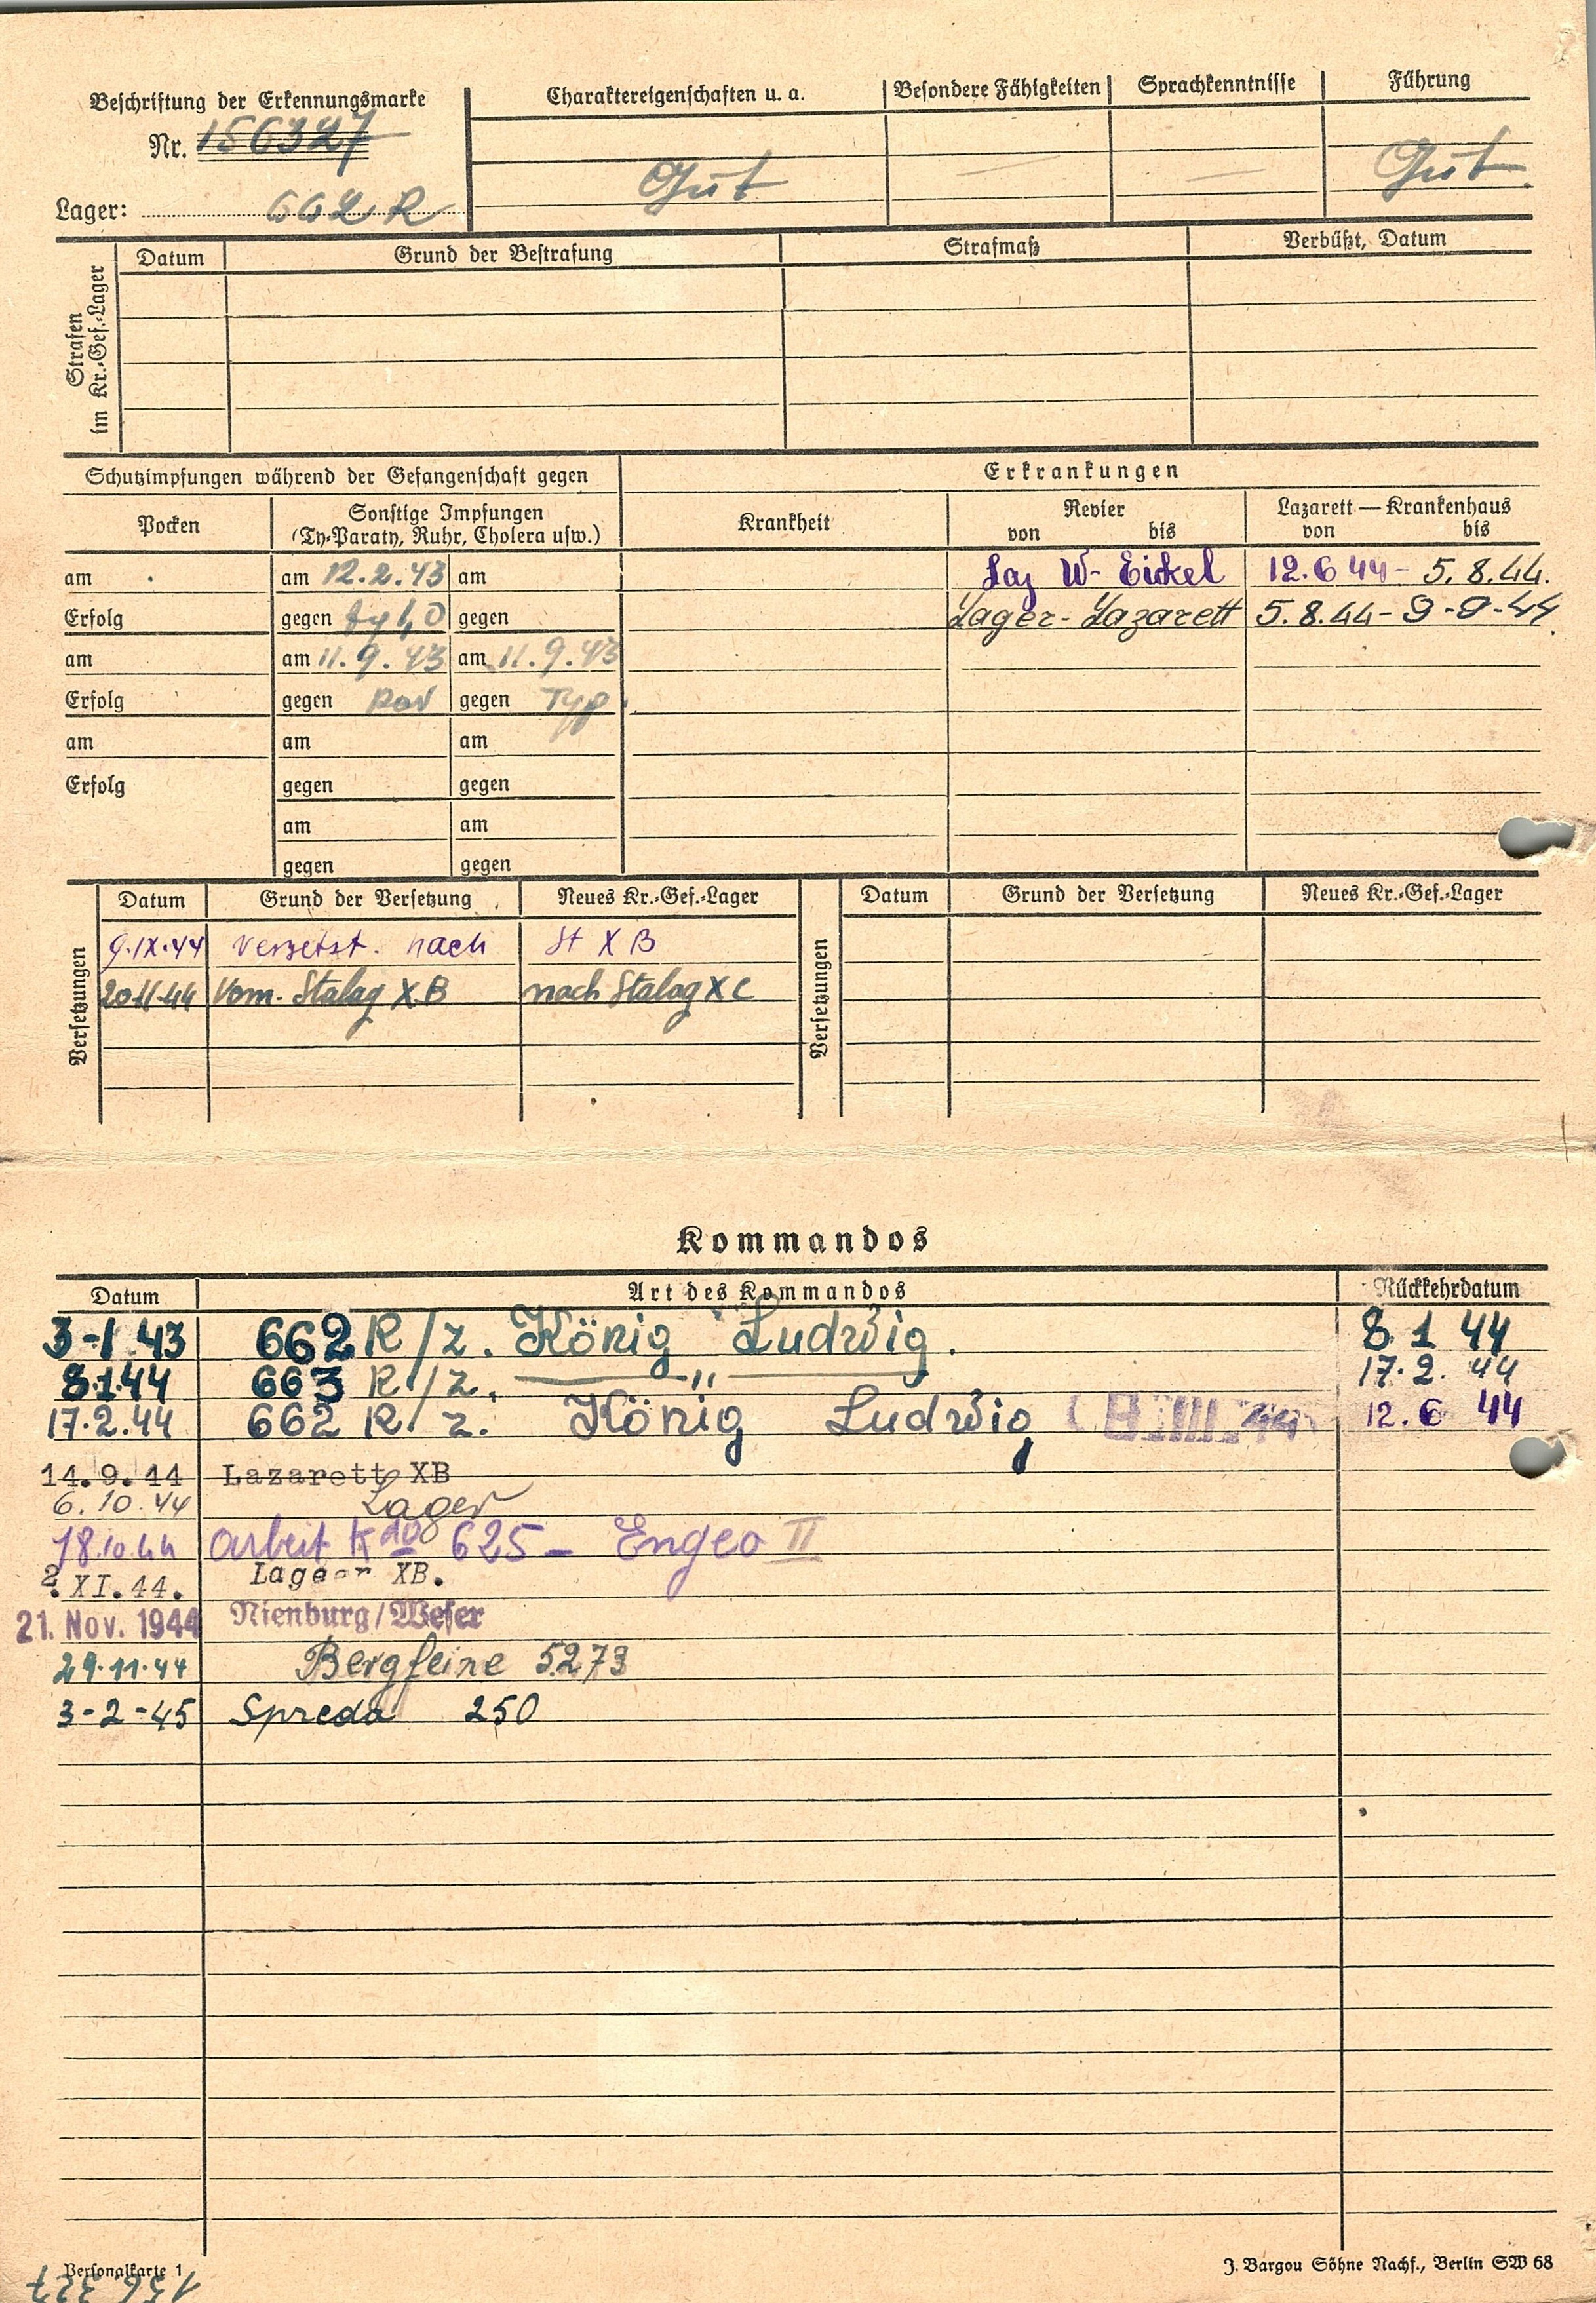 Beschriftung der Erkennungsmarke
Nr. 156327
Lager: 662 R
Charaktereigenschaften u. a.
Besondere Fähigkeiten
Sprachkenntnisse
Führung
Gut
—
—
Gut.
Strafen im Kr.-Gef.-Lager
Datum
Grund der Bestrafung
Strafmaß
Verbüßt, Datum
Schutzimpfungen während der Gefangenschaft gegen
Erkrankungen
Pocken
Sonstige Impfungen
(Ty-Paraty, Ruhr, Cholera usw.)
Krankheit
Revier
von bis
Lazarett — Krankenhaus
von bis
am am 12.2.43 am
Laz W- Eickel 12.6 44 - 5.8.44.
Erfolg gegen gegen
Lager-Lazarett 5.8.44 - 9-9-44.
am am 11.9.43 am 11.9.43
Erfolg gegen gegen Typ.
am am am
Erfolg gegen gegen
am am
gegen gegen
Versetzungen
Datum Grund der Versetzung Neues Kr.-Gef.-Lager
9.IX.44 versetzt. nach St X B
20.11.44 Vom. Stalag X B nach Stalag X C
Versetzungen
Datum Grund der Versetzung Neues Kr.-Gef.-Lager
Kommandos
Datum Art des Kommandos Rückkehrdatum
3-1.43 662 R/z. König Ludwig. 8 1 44
8.1.44 663 R./z. — " — 17.2. 44
17.2.44 662 R. z. König Ludwig 12.6 44
14.9.44 Lazarett XB
6.10.44 Lager
18.10.44 Arbeit Kdo 625 — Engeo II
2.XI.44. Lager XB.
21. Nov. 1944 Nienburg/Weser
29.11.44 Bergfeine 5273
3-2-45 Spreda 250
Personalkarte 1
J. Bargou Söhne Nachf., Berlin SW 68
156 327